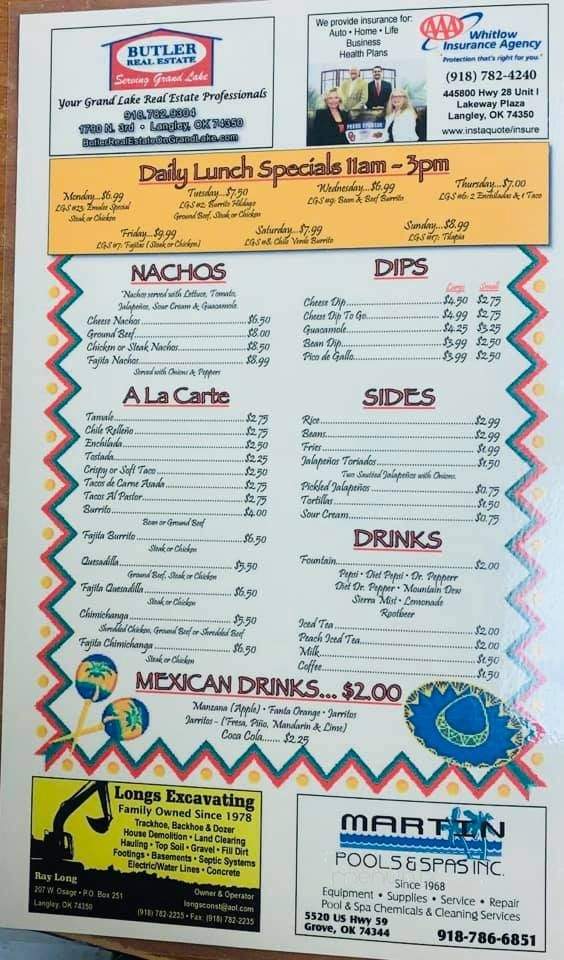 BUTLER
REAL ESTATE
Serving Grand Lake
Your Grand Lake Real Estate Professionals
918.782.9304
1790 N. 3rd • Langley, OK 74350
ButlerRealEstateOnGrandLake.com
We provide insurance for:
Auto • Home • Life
Business
Health Plans
AAA
Whitlow
Insurance Agency
Protection that's right for you.
(918) 782-4240
445800 Hwy 28 Unit I
Lakeway Plaza
Langley, OK 74350
www.instaquote/insure
Daily Lunch Specials 11am - 3pm
Monday...$6.99
LGS #23: Emalee Special
Steak or Chicken
Tuesday...$7.50
LGS #2: Burrito Hildago
Ground Beef, Steak or Chicken
Wednesday...$6.99
LGS #9: Bean & Beef Burrito
Thursday...$7.00
LGS #6: 2 Enchiladas & 1 Taco
Friday...$9.99
LGS #7: Fajitas (Steak or Chicken)
Saturday...$7.99
LGS #8: Chile Verde Burrito
Sunday...$8.99
LGS #17: Tilapia
NACHOS
*Nachos served with Lettuce, Tomato,
Jalapeños, Sour Cream & Guacamole
Cheese Nachos $6.50
Ground Beef $8.00
Chicken or Steak Nachos $8.50
Fajita Nachos $8.99
Served with Onions & Peppers
A La Carte
Tamale $2.75
Chile Relleño $2.75
Enchilada $2.50
Tostada $2.25
Crispy or Soft Taco $2.50
Tacos de Carne Asada $2.75
Tacos Al Pastor $2.75
Burrito $4.00
Bean or Ground Beef
Fajita Burrito $6.50
Steak or Chicken
Quesadilla $5.50
Ground Beef, Steak or Chicken
Fajita Quesadilla $6.50
Steak or Chicken
Chimichanga $5.50
Shredded Chicken, Ground Beef or Shredded Beef
Fajita Chimichanga $6.50
Steak or Chicken
DIPS
Large Small
Cheese Dip $4.50 $2.75
Cheese Dip To Go $4.99 $2.75
Guacamole $4.25 $3.25
Bean Dip $3.99 $2.50
Pico de Gallo $3.99 $2.50
SIDES
Rice $2.99
Beans $2.99
Fries $1.99
Jalapeños Toriados $1.50
Two Sautéed Jalapeños with Onions
Pickled Jalapeños $0.75
Tortillas $1.50
Sour Cream $0.75
DRINKS
Fountain $2.00
Pepsi • Diet Pepsi • Dr. Pepperr
Diet Dr. Pepper • Mountain Dew
Sierra Mist • Lemonade
Rootbeer
Iced Tea $2.00
Peach Iced Tea $2.00
Milk $1.50
Coffee $1.50
MEXICAN DRINKS... $2.00
Manzana (Apple) • Fanta Orange • Jarritos
Jarritos - (Fresa, Piño, Mandarin & Lime)
Coca Cola....... $2.25
Longs Excavating
Family Owned Since 1978
Trackhoe, Backhoe & Dozer
House Demolition • Land Clearing
Hauling • Top Soil • Gravel • Fill Dirt
Footings • Basements • Septic Systems
Electric/Water Lines • Concrete
Ray Long
207 W. Osage • P.O. Box 251
Langley, OK 74350
Owner & Operator
longsconst@aol.com
(918) 782-2235 • Fax: (918) 782-2235
MARTIN
POOLS & SPAS INC.
Since 1968
Equipment • Supplies • Service • Repair
Pool & Spa Chemicals & Cleaning Services
5520 US Hwy 59
Grove, OK 74344
918-786-6851